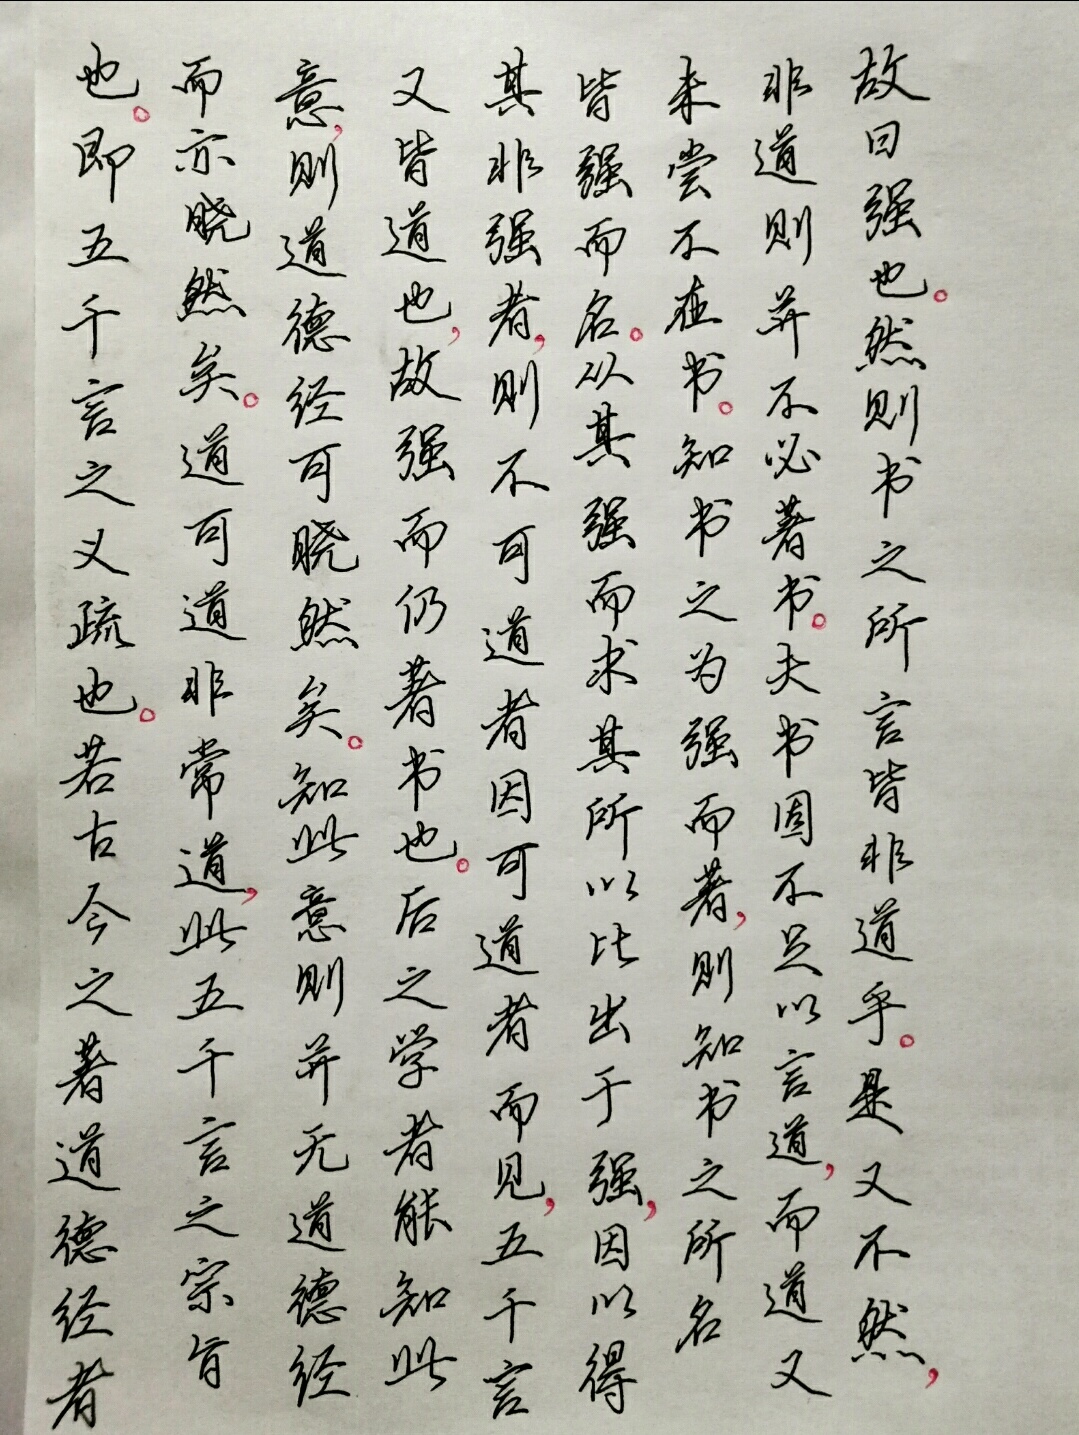 故曰强也。然则书之所言皆非道乎。是又不然，
非道则并不必著书。夫书固不足以言道，而道又
未尝不在书。知书之为强而著，则知书之所名
皆强而名。从其强而求其所以比出于强，因以得
其非强者，则不可道者因可道者而见，五千言
又皆道也，故强而仍著书也。后之学者能知此
意，则道德经可晓然矣。知此意则并无道德经
而亦晓然矣。道可道非常道，此五千言之宗旨
也。即五千言之义疏也。若古今之著道德经者